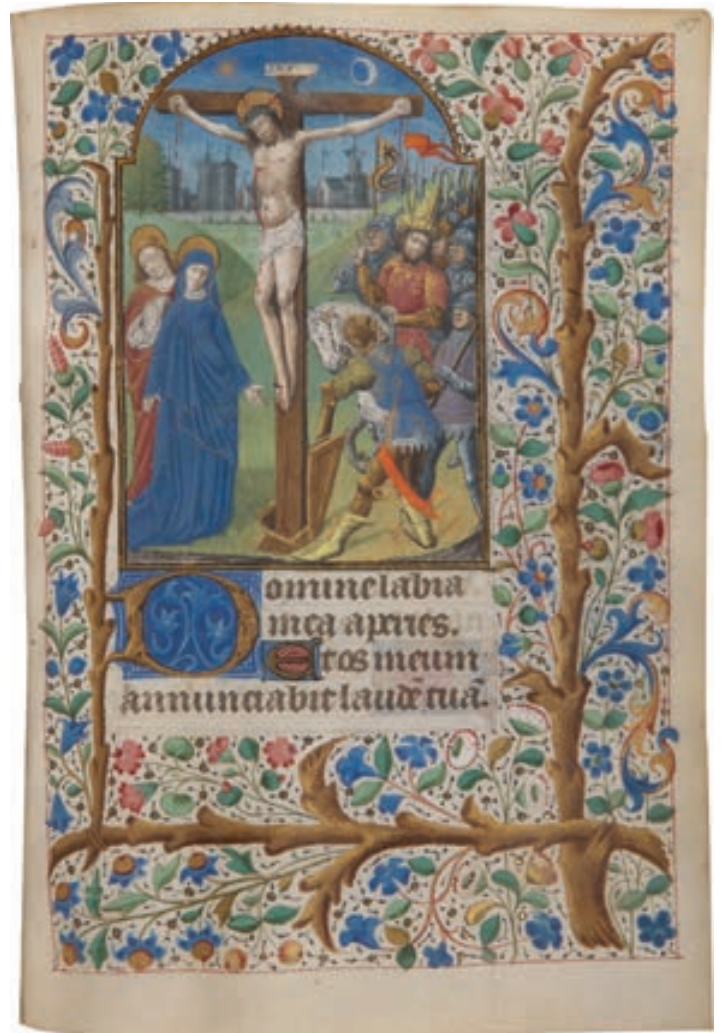 Domine labia
mea aperies.
Et os meum
annunciabit laudē tuā.